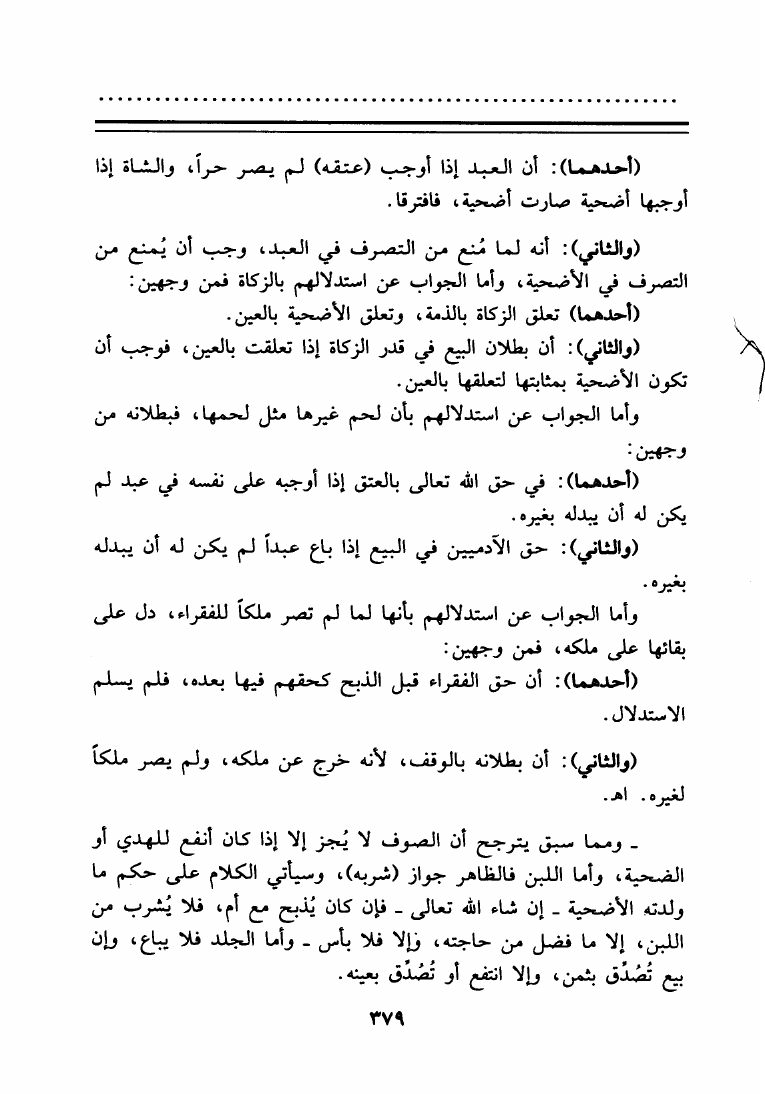 (أحدهما): أن العبد إذا أوجب (عتقه) لم يصر حراً، والشاة إذا
أوجبها أضحية صارت أضحية، فافترقا.
(والثاني): أنه لما مُنع من التصرف في العبد، وجب أن يُمنع من
التصرف في الأضحية، وأما الجواب عن استدلالهم بالزكاة فمن وجهين:
(أحدهما) تعلق الزكاة بالذمة، وتعلق الأضحية بالعين.
(والثاني): أن بطلان البيع في قدر الزكاة إذا تعلقت بالعين، فوجب أن
تكون الأضحية بمثابتها لتعلقها بالعين.
وأما الجواب عن استدلالهم بأن لحم غيرها مثل لحمها، فبطلانه من
وجهين:
(أحدهما): في حق الله تعالى بالعتق إذا أوجبه على نفسه في عبد لم
يكن له أن يبدله بغيره.
(والثاني): حق الآدميين في البيع إذا باع عبداً لم يكن له أن يبدله
بغيره.
وأما الجواب عن استدلالهم بأنها لما لم تصر ملكاً للفقراء، دل على
بقائها على ملكه، فمن وجهين:
(أحدهما): أن حق الفقراء قبل الذبح كحقهم فيها بعده، فلم يسلم
الاستدلال.
(والثاني): أن بطلانه بالوقف، لأنه خرج عن ملكه، ولم يصر ملكاً
لغيره. اهـ.
- ومما سبق يترجح أن الصوف لا يُجز إلا إذا كان أنفع للهدي أو
الضحية، وأما اللبن فالظاهر جواز (شربه)، وسيأتي الكلام على حكم ما
ولدته الأضحية - إن شاء الله تعالى - فإن كان يُذبح مع أم، فلا يُشرب من
اللبن، إلا ما فضل من حاجته، وإلا فلا بأس - وأما الجلد فلا يباع، وإن
بيع تُصُدِّق بثمن، وإلا انتفع أو تُصُدِّق بعينه.
٣٧٩